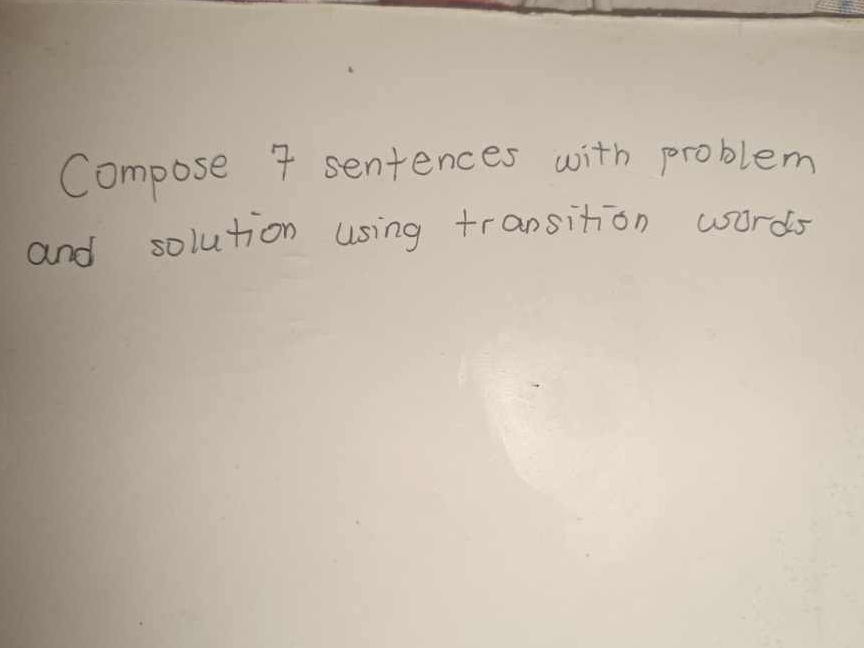 Compose 7 sentences with problem
and solution using transition words